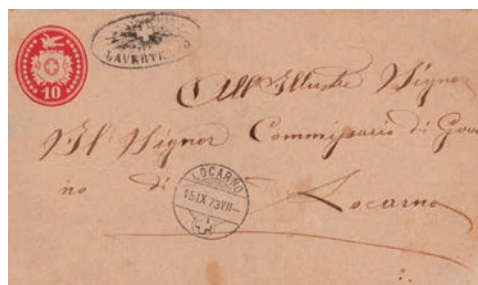 10
LAVERTEZZO
All' Illustre Signor
Il Signor Commissario di Gover
no di
LOCARNO
15 IX 73 VII–
Locarno